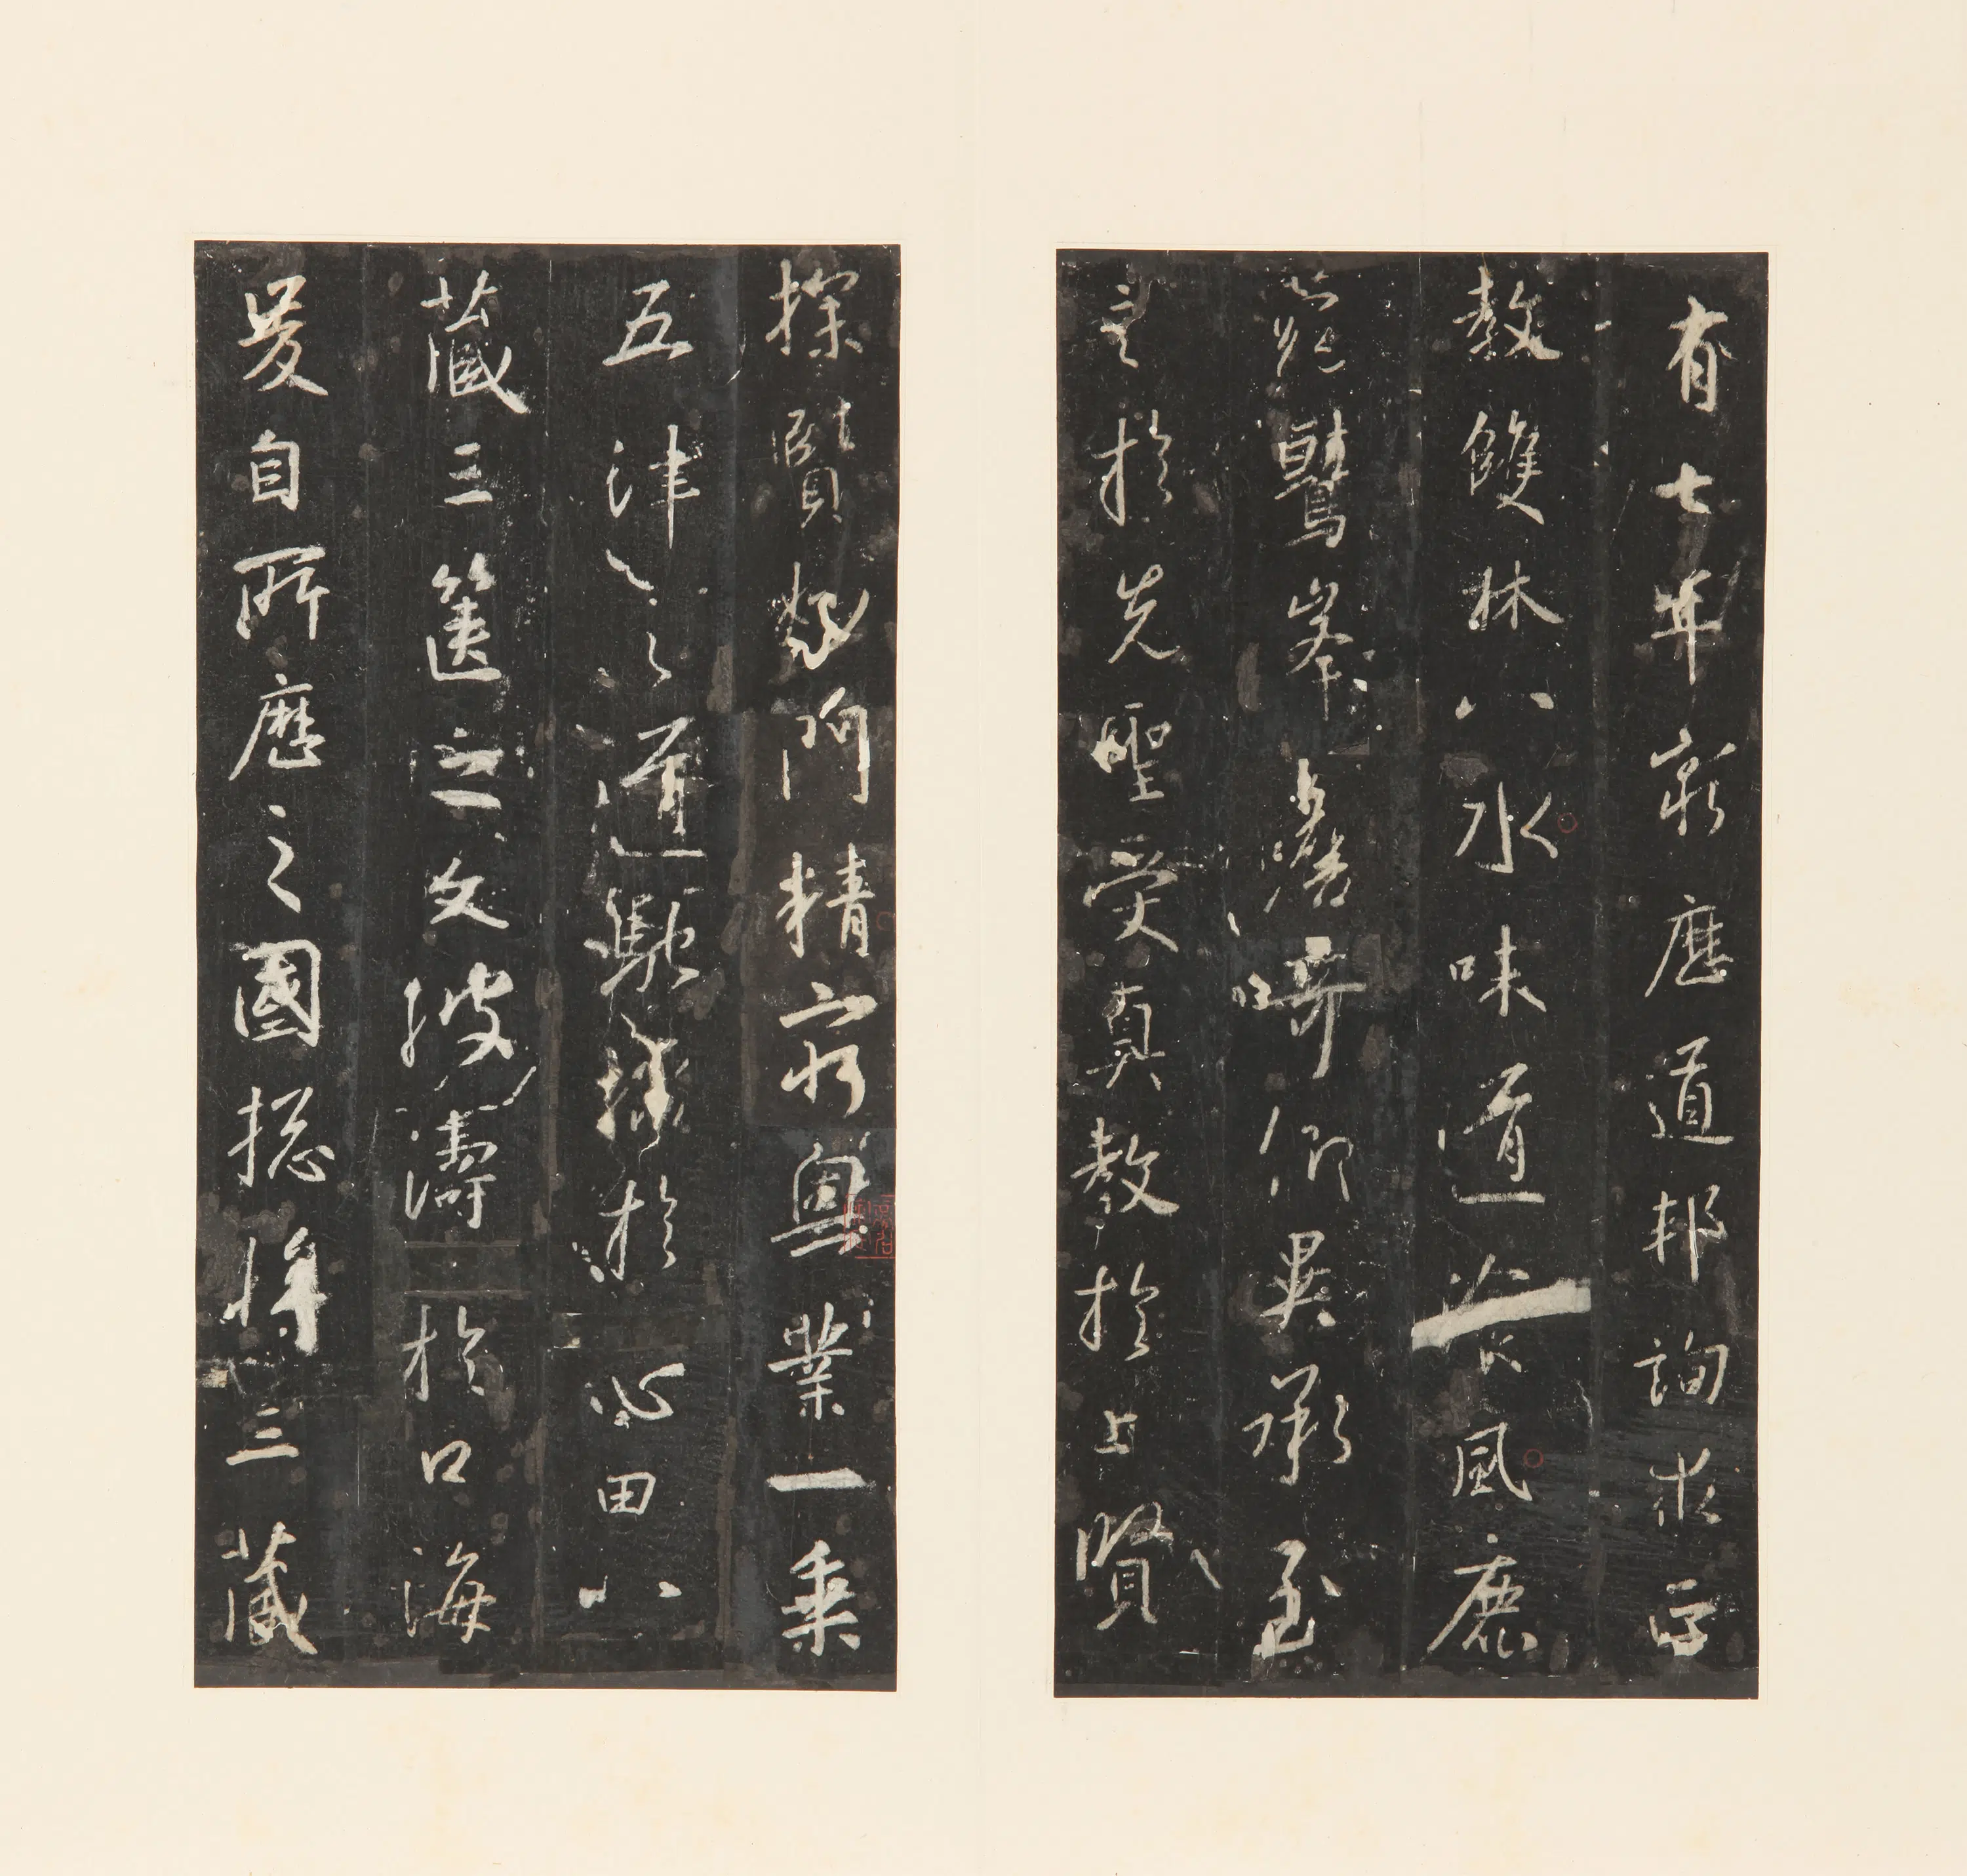 有七年窮歷道邦詢求正
教雙林八水味道飡風鹿
菀鷲峯瞻奇仰異承至
言於先聖受真教於上賢
探賾妙門精窮奧業一乘
五律之道馳驟於心田八
藏三篋之文波濤於口海
爰自所歷之國摠將三藏